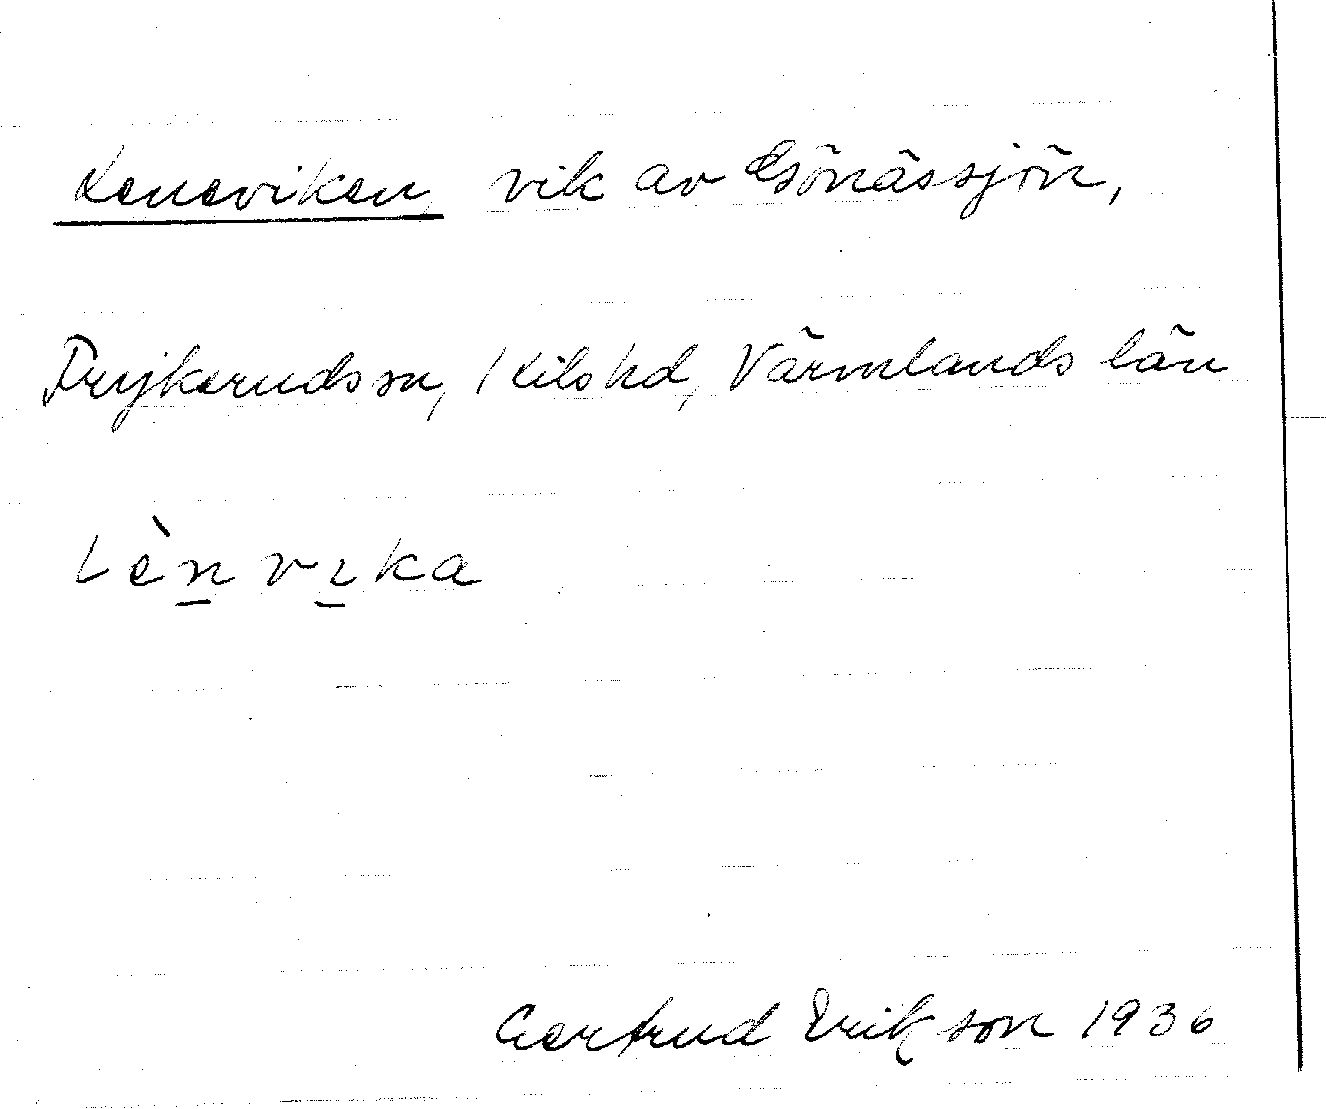 Leneviken vik av Gsönässjön,
Frykerudssn, Kilshd, Värmlands län
Lènvıka
Gertrud Erikson 1936